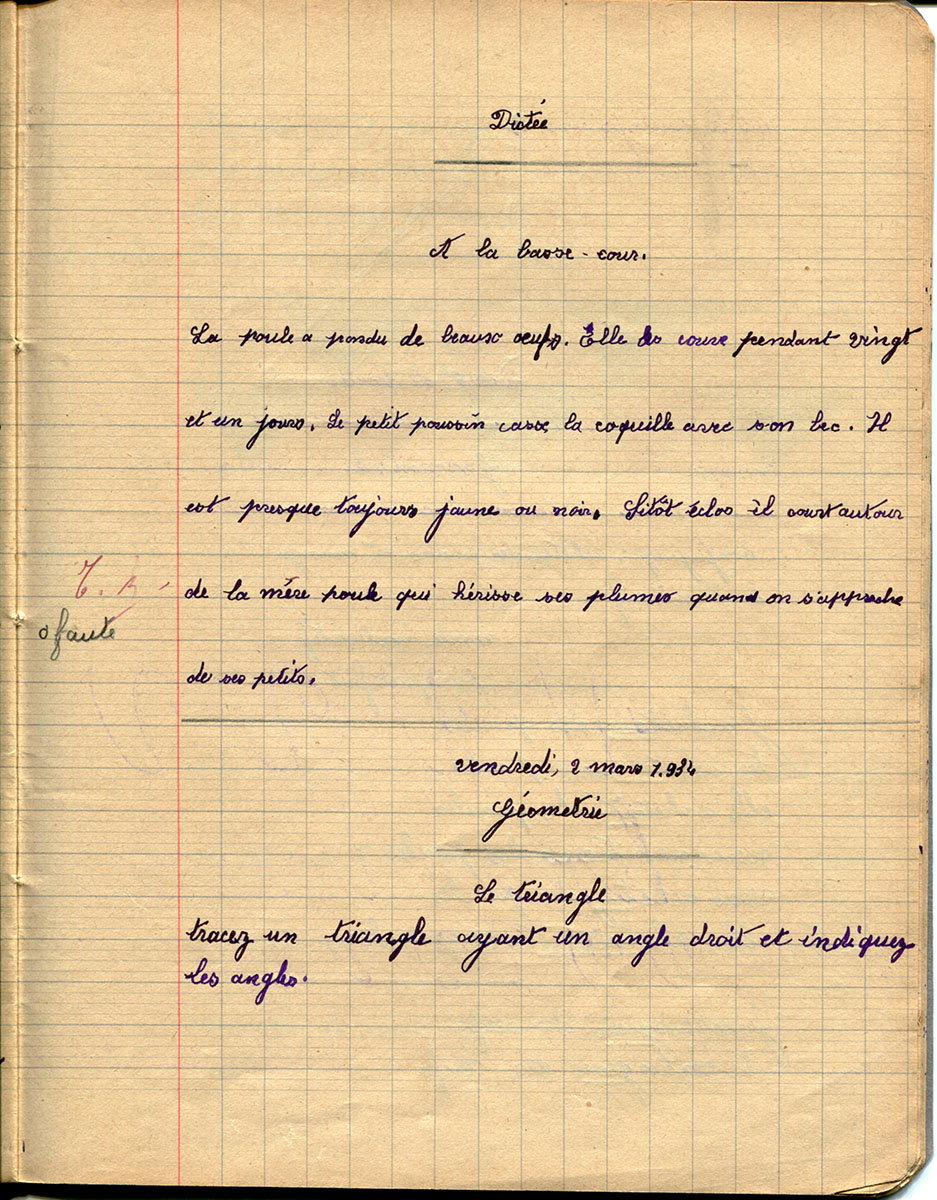 Dictée
A la basse-cour.
La poule a pondu de beaux oeufs. Elle les couve pendant vingt
et un jours. Le petit poussin casse la coquille avec son bec. Il
est presque toujours jaune ou noir. Sitôt éclos il court autour
de la mère poule qui hérisse ses plumes quand on s'approche
de ses petits.
T. B
0 faute
vendredi, 2 mars 1.934
Géometrie
Le triangle
tracez un triangle ayant un angle droit et indiquez
les angles.